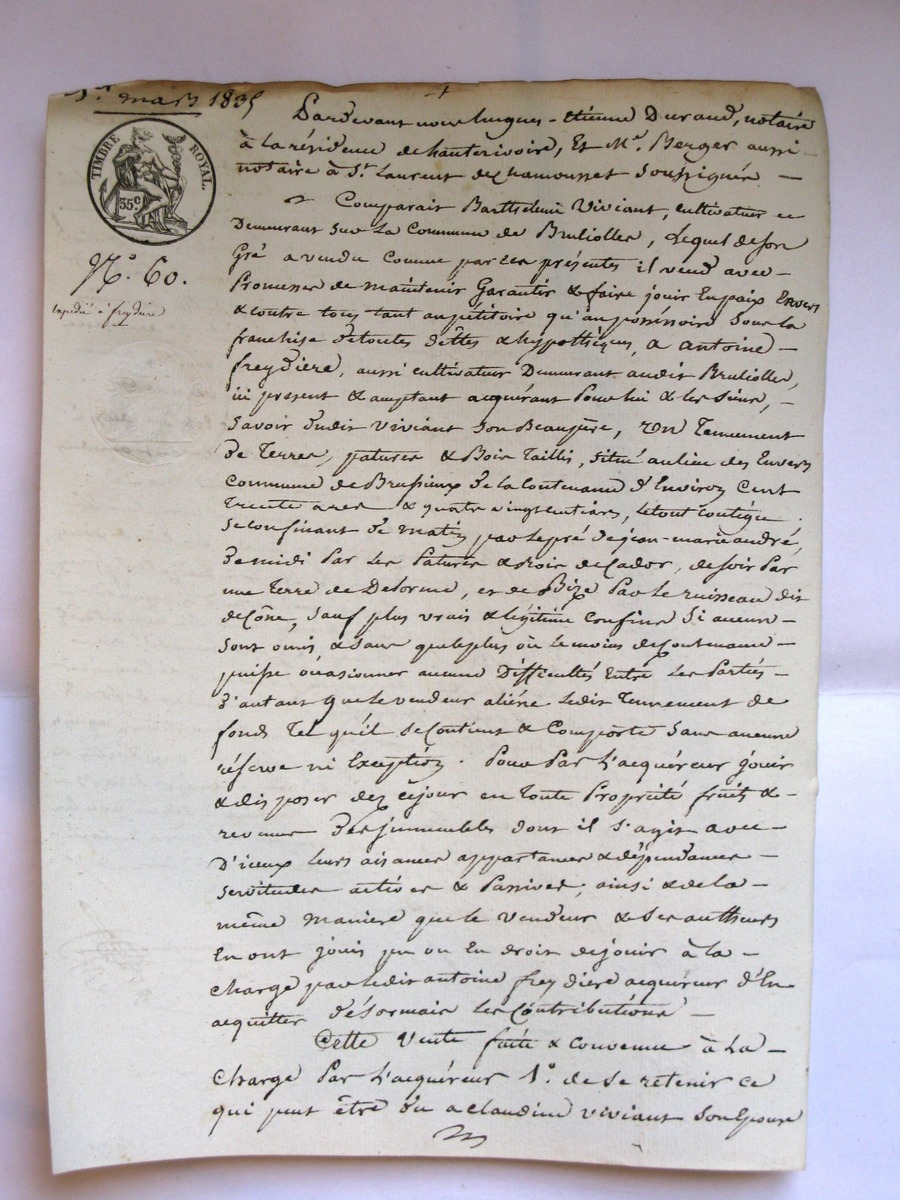 mars 1835
TIMBRE ROYAL.
35c
N.o 60.
expédié à freydière
Pardevant nous hugues-étienne Durand, notaire
à la résidence de hauterivoire, Et M.e Berger aussi
notaire à S.t Laurent de Chamousset soussignés
Comparait Barthelemi Viviant, cultivateur
Demeurant sur la Commune de Brullolles, lequel de son
Gré a vendu comme par ces présentes il vend avec
Promesse de maintenir Garantir & faire jouir En paix Envers
& contre tous tant au pétitoire qu'au possessoire sous la
franchise de toutes dettes & hypothèques, a antoine
freydière, aussi cultivateur Demeurant audit Brullolles,
ici présent & acceptant acquérant Pour lui & les siens,
savoir dudit Viviant son Beaupère, un Tennement
De Terres, patures & Bois Taillis, situé au lieu des Envers
Commune de Brussieux de la Contenance d'Environ Cent
Trente ares & quatre vingt centiares, le tout contigu
se confinant de matin, par le pré de jean-marie andré,
De midi Par les Patures & bois de Cador, de soir Par
une Terre de Delorme, et de Bize Par le ruisseau dit
de Cône, sauf plus vrais & légitime confins si aucuns
sont omis, & sans que le plus ou le moins de contenance
puisse occasionner aucune Difficultés Entre les Parties
D'autant que le vendeur aliéne ledit Tennement de
fonds Tel qu'il se Contient & Comporte sans aucune
réserve ni Exception. Pour Par l'acquéreur jouir
& disposer dez cejour en toute Propriété fruits &
revenus des immeubles dont il s'agit avec
D'iceux leurs aisances appartances & dépendances
servitudes actives & Passives, ainsi & de la
même manière que le vendeur & ses autheurs
En ont joui pu ou Eu droit de jouir à la
charge par ledit antoine freydière acquéreur d'En
acquitter désormais les Contributions
Cette Vente faite & convenue à la
charge Par l'acquéreur 1.o de se retenir ce
qui peut être du a Claudine Viviant son Epouse